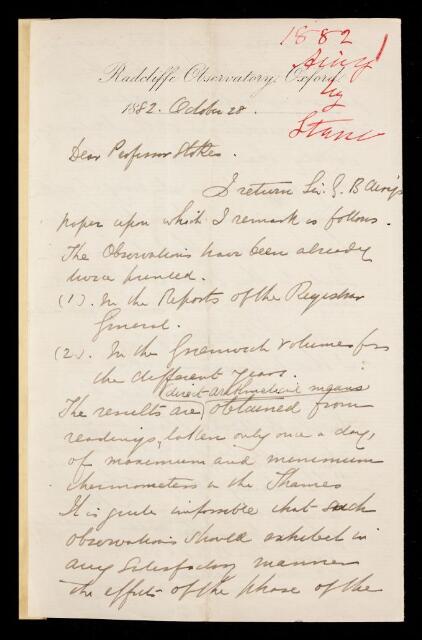 1882
Airy
by
Stone
Radcliffe Observatory, Oxford.
1882. October 28.
Dear Professor Stokes.
I return Sir. G. B Airy's
paper upon which I remark as follows.
The Observations have been already
twice printed.
(1). In the Reports of the Registrar
General.
(2). In the Greenwich Volumes for
the different years.
direct arithmetical means
The results are obtained from
readings, taken only once a day,
of maximum and minimum
thermometers in the Thames
It is quite impossible that such
observations should exhibit in
any satisfactory manner
the effects of the phase of the